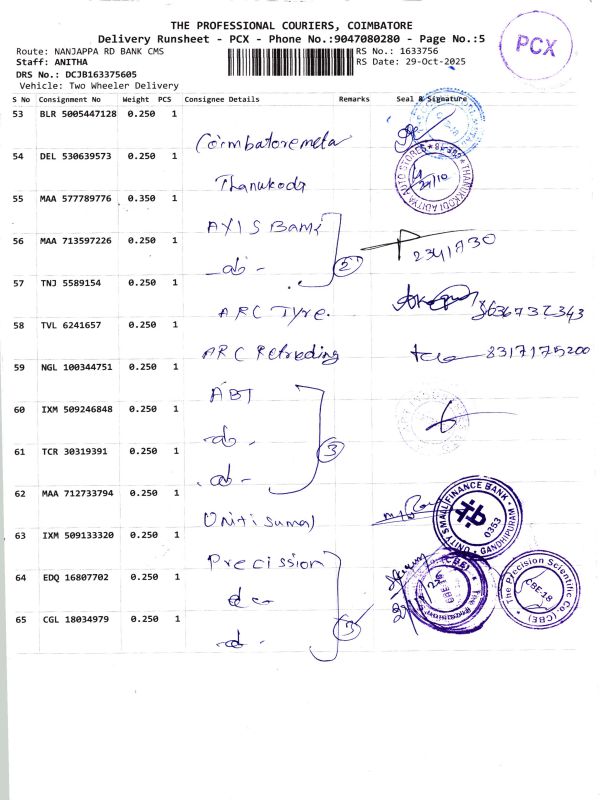 THE PROFESSIONAL COURIERS, COIMBATORE
Delivery Runsheet - PCX - Phone No.:9047080280 - Page No.:5
PCX
Route: NANJAPPA RD BANK CMS
RS No.: 1633756
Staff: ANITHA
RS Date: 29-Oct-2025
DRS No.: DCJB163375605
Vehicle: Two Wheeler Delivery
S No Consignment No Weight PCS Consignee Details Remarks Seal & Signature
53 BLR 5005447128 0.250 1 Coimbatore meta
54 DEL 530639573 0.250 1 Thanukoda
THANUKKODI ADITYA AUTO STORES
55 MAA 577789776 0.350 1 AXIS Bank
56 MAA 713597226 0.250 1 -do- 2
57 TNJ 5589154 0.250 1 ARC Tyre.
58 TVL 6241657 0.250 1 ARC Retreding 8317175200
59 NGL 100344751 0.250 1 ABT
60 IXM 509246848 0.250 1 -do-
61 TCR 30319391 0.250 1 -do- 3
62 MAA 712733794 0.250 1
UNITY SMALL FINANCE BANK GANDHIPURAM 0353
63 IXM 509133320 0.250 1 Precission
64 EDQ 16807702 0.250 1 do
The Precision Scientific Co. (CBE) CBE-18
65 CGL 18034979 0.250 1 -do- 3